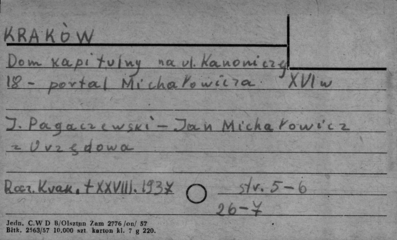 KRAKÓW
Dom kapitulny na ul. Kanoniczej
18 - portal Michałowicza XVI w
J. Pagaczewski - Jan Michałowicz
z Urzędowa
Rocz. Krak. t XXVIII. 1937 str. 5-6
26-7
Jedn. C.W D B/Olsztyn Zam 2776/on/57
Błtk. 2563/57 10,000 szt. karton kl. 7 g 220.